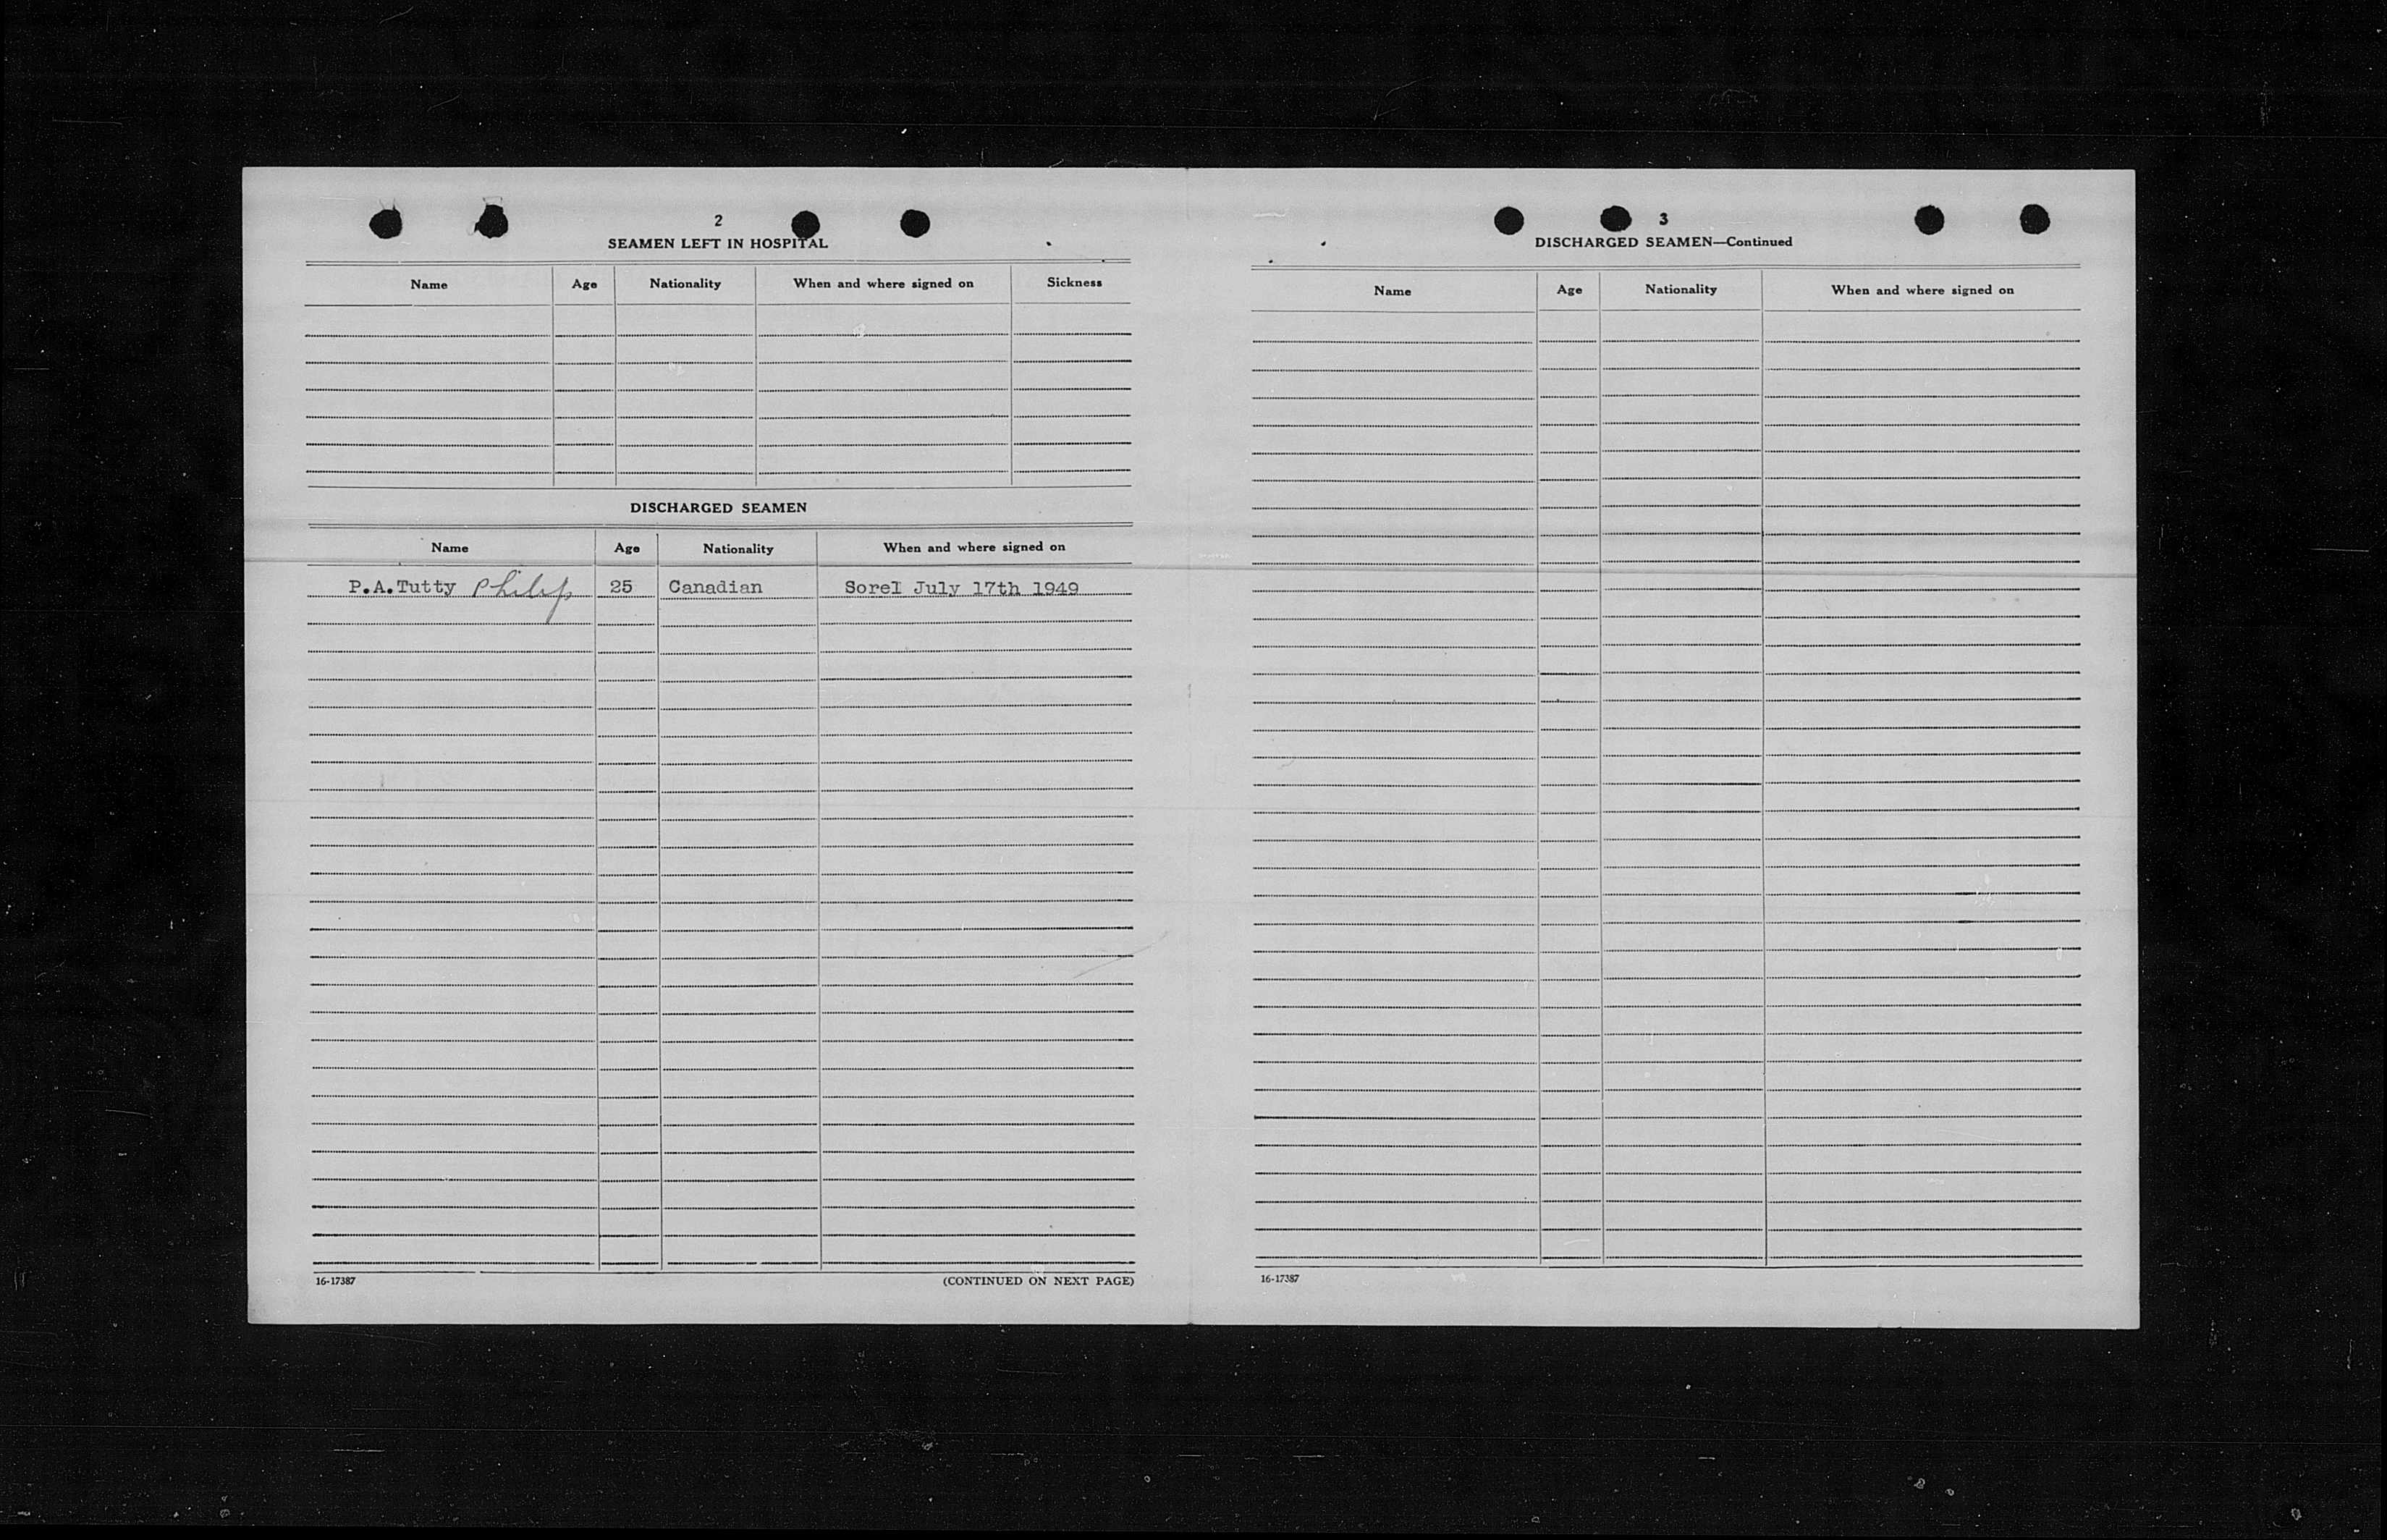 2
SEAMEN LEFT IN HOSPITAL
Name Age Nationality When and where signed on Sickness
DISCHARGED SEAMEN
Name Age Nationality When and where signed on
P.A.Tutty Philip 25 Canadian Sorel July 17th 1949
16-17387 (CONTINUED ON NEXT PAGE)
3
DISCHARGED SEAMEN—Continued
Name Age Nationality When and where signed on
16-17387